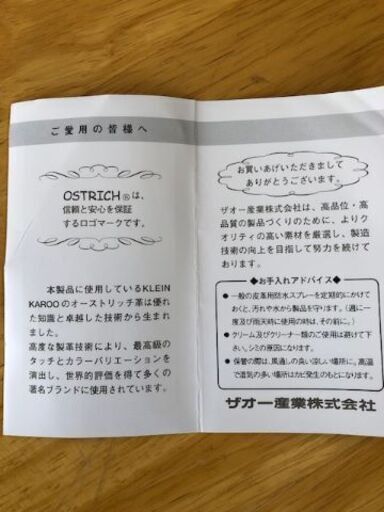 ご愛用の皆様へ
OSTRICH®は、
信頼と安心を保証
するロゴマークです。
本製品に使用しているKLEIN
KAROOのオーストリッチ革は優れ
た知識と卓越した技術から生まれ
ました。
高度な製革技術により、最高級の
タッチとカラーバリエーションを
演出し、世界的評価を得て多くの
著名ブランドに使用されています。
お買いあげいただきまして
ありがとうございます。
ザオー産業株式会社は、高品位・高
品質の製品づくりのために、よりク
オリティの高い素材を厳選し、製造
技術の向上を目指して努力を続けて
おります。
◆お手入れアドバイス◆
●一般の皮革用防水スプレーを定期的にかけて
おくと、汚れや水から製品を守ります。(週に一
度及び雨天時に使用の時は、その前に。)
●クリーム及びクリーナー類のご使用は避けて下
さい。シミの原因になります。
●保管の際は、風通しの良い涼しい場所に。高温
で湿気の多い場所はカビ発生のもとになります。
ザオー産業株式会社